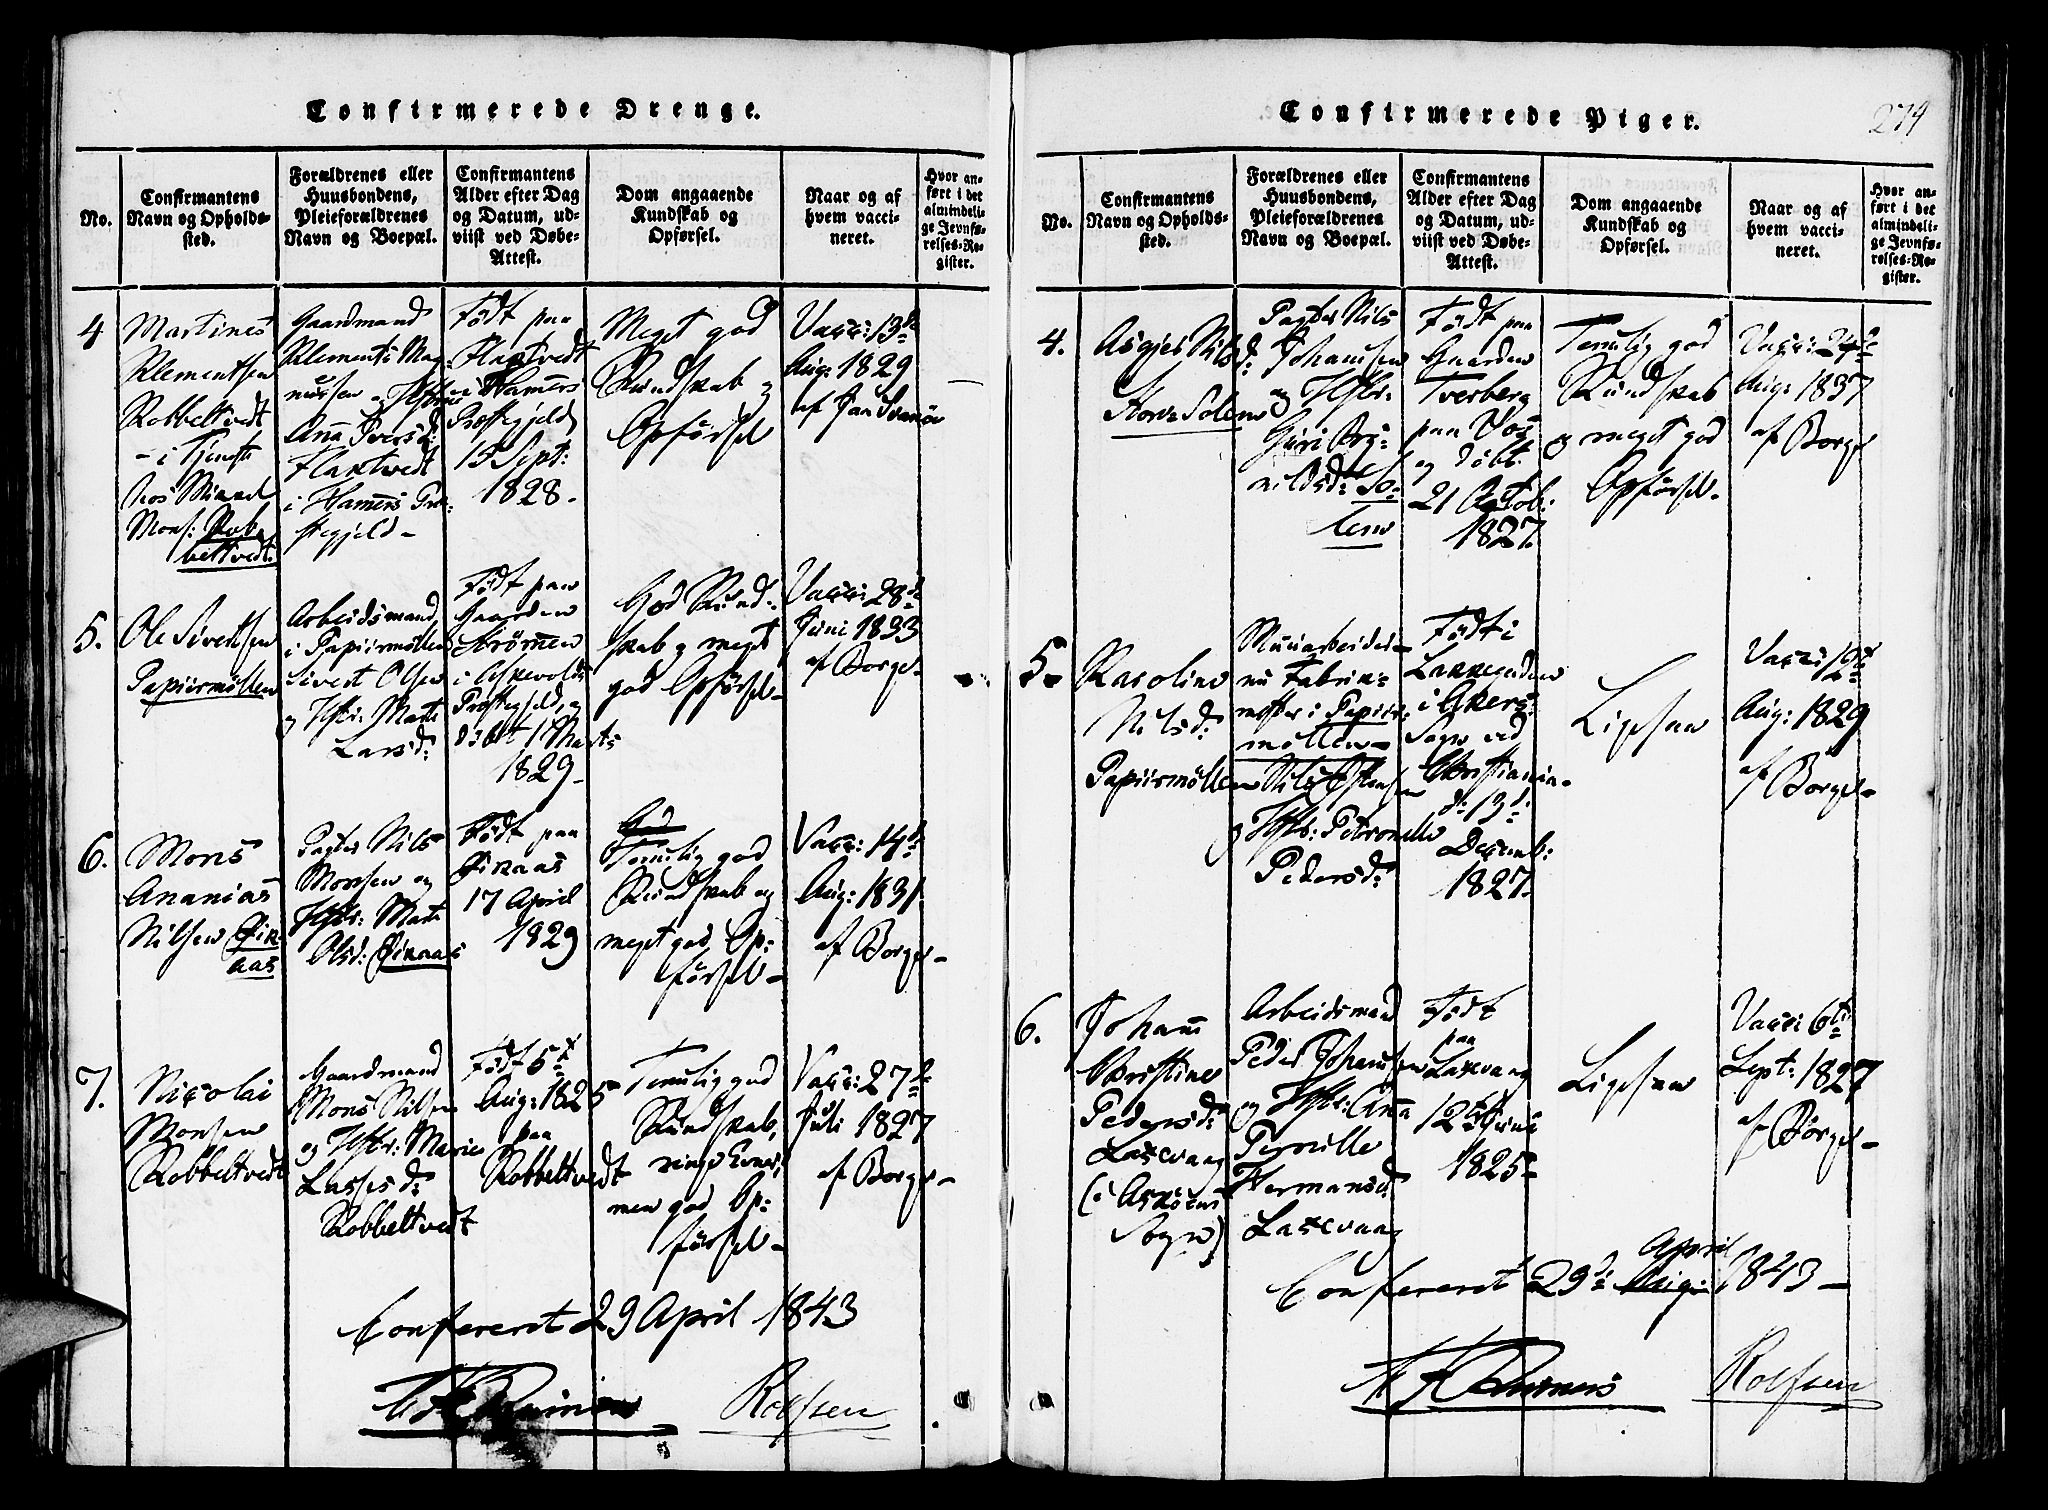 Confirmerede Drenge.
No.
Confirmantens
Navn og Opholds-
sted.
Forældrenes eller
Huusbondens,
Pleieforældrenes
Navn og Boepæl.
Confirmantens
Alder efter Dag
og Datum, ud-
viist ved Døbe-
Attest.
Dom angaaende
Kundskab og
Opførsel.
Naar og af
hvem vacci-
neret.
Hvor an-
ført i det
almindeli-
ge Jevnfø-
relses-Re-
gister.
4
Martines
Klementsen
Robbeltvedt
- i Tjeneste
hos
Mons: Rob-
beltvedt.
Gaardmand
Klements Mag
nussen og Hstru
Ana Iversd:
Flaktvedt
i Hamers Præ-
stegjeld -
Født paa
Flaktvedt
i Hamers
Præstegjeld
15 Sept:
1828.
Meget god
Kundskab og
Opførsel
Vacc: 13de
Aug: 1829
af Jan Svanøe
5.
Ole Sivertsen
Papiirmøllen
Arbeidsmand
i Papiirmøllen
Sivert Olsen
og Hstr: Marte
Larsd:
Født paa
Gaarden
Strømen
i Askevolds
Præstegjeld, og
døbt 1 Marts
1829-
God Kund-
skab og meget
god Opførsel-
Vacc: 28de
Juni 1833
af Borge-
6.
Mons
Ananias
Nilsen
Pagter Nils
Monsen og
Hstr: Marte
Olsd:
Født paa
17 April
1829
God
Temelig god
Kundskab og
meget god Op-
førsel-
Vacc: 14de
Aug: 1831.
af Borge-
7.
Nicolai
Monsen
Robbeltvedt
Gaardmand
Mons Nilsen
og Hstr: Marie
Lassesd:
Robbeltvedt
Født 5te
Aug: 1825
paa
Robbeltvedt
Temelig god
Kundskab,
ringe Evner,
men god Op-
førsel-
Vacc: 27de
Juli 1827
af Borge-
Confereret 29 April 1843
Rolfsen
Confirmerede Piger.
274
No.
Confirmantens
Navn og Opholds-
sted.
Forældrenes eller
Huusbondens,
Pleieforældrenes
Navn og Boepæl.
Confirmantens
Alder efter Dag
og Datum, ud-
viist ved Døbe-
Attest.
Dom angaaende
Kundskab og
Opførsel.
Naar og af
hvem vacci-
neret.
Hvor an-
ført i det
almindeli-
ge Jevnfø-
relses-Re-
gister.
4.
Asgjer Nilsd:
Store Solem
Pagter Nils
Johansen
og Hstr:
Guri Bry-
nildsd: So-
lem
Født
paa
Gaarden
Tverberg
paa Vos
og døbt
21 Octob:
1827.
Temelig god
Kundskab
og meget god
Opførsel-
Vacc: 24de
Aug: 1837
af Borge
5.
Karoline
Nilsd:
Papiirmøllen
Muurarbeider-
nu Fabrik-
mester i Papiir-
møllen-
Nils Østensen
og Hstr: Petronelle
Pedersd:
Født i
i Akers
Sogn ved
Christiania-
d: 13de
Decemb:
1827.
Ligesaa
Vacc: 19de
Aug: 1829
af Borge-
6.
Johane
Christine
Pedersd:
Laxevaag
(i Askøens
Sogn)
Arbeidsmand
Peder Johansen
og Hstr: Ana
Pernille
Hermansd:
Laxevaag
Født
paa
Laxevaag
12te Juni
1825-
Ligesaa
Vacc: 6te
Sept: 1827
af Borge-
April
Confereret 29de Aug: 1843-
Rolfsen